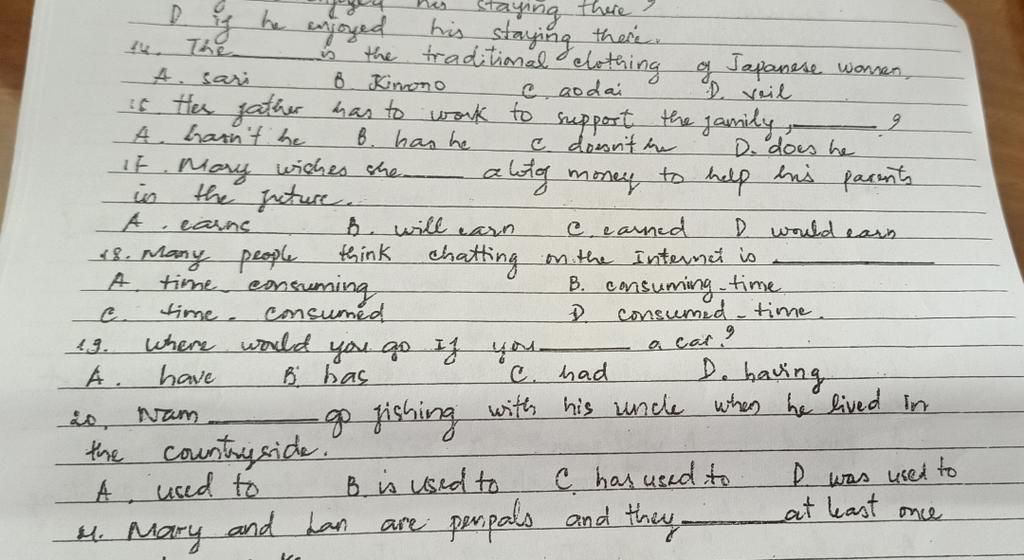 enjoyed his staying there?
D if he enjoyed his staying there.
14. The ______ is the traditional clothing of Japanese women.
A. sari B. Kimono C. aodai D. veil
15 Her father has to work to support the family, ______ ?
A. hasn't he B. has he C. doesn't he D. does he
17. Mary wishes she ______ a lot of money to help his parents
in the future.
A. earns B. will earn C. earned D would earn
18. Many people think chatting on the Internet is ______
A. time_consuming B. consuming_time
C. time_consumed D consumed_time.
19. Where would you go If you ______ a car?
A. have B. has C. had D. having
20. Nam ______ go fishing with his uncle when he lived In
the countryside.
A. used to B. is used to C. has used to D was used to
21. Mary and Lan are penpals and they ______ at least once